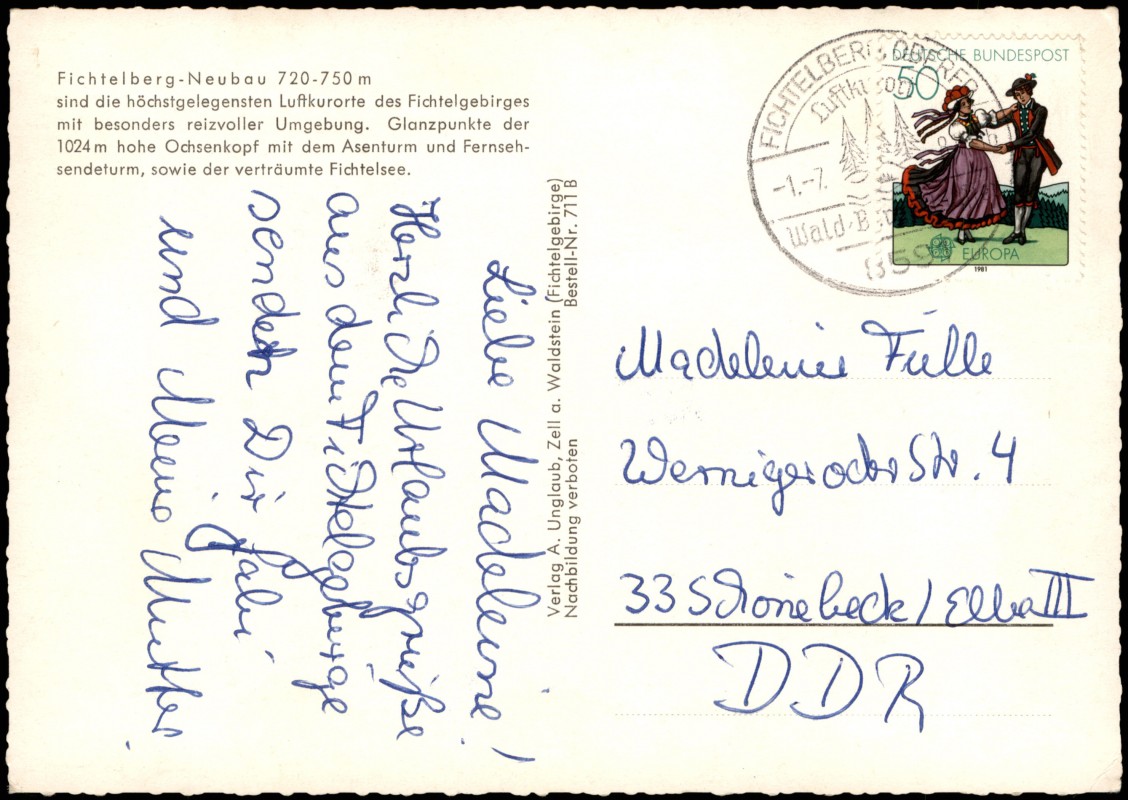 Fichtelberg-Neubau 720-750 m
sind die höchstgelegensten Luftkurorte des Fichtelgebirges
mit besonders reizvoller Umgebung. Glanzpunkte der
1024 m hohe Ochsenkopf mit dem Asenturm und Fernseh-
sendeturm, sowie der verträumte Fichtelsee.
Liebe Madeleine!
Herzliche Urlaubsgrüße
aus dem Fichtelgebirge
senden Dir Gabi
und Meine Mutter.
Verlag A. Unglaub, Zell a. Waldstein (Fichtelgebirge)
Nachbildung verboten Bestell-Nr. 711 B
FICHTELBERG, OBERFR
Luftkurort
-1.-7.
Wald-B
859
DEUTSCHE BUNDESPOST
50
EUROPA
1981
Madeleine Fülle
Wernigeroder Str. 4
33 Schönebeck/Elbe III
DDR